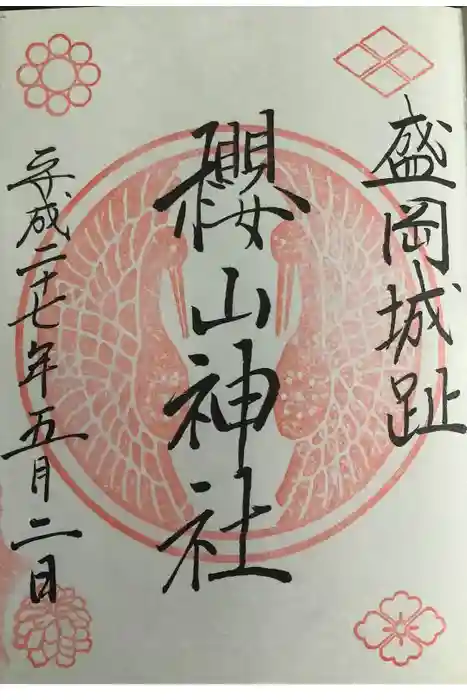 盛岡城趾
櫻山神社
平成二十七年五月二日